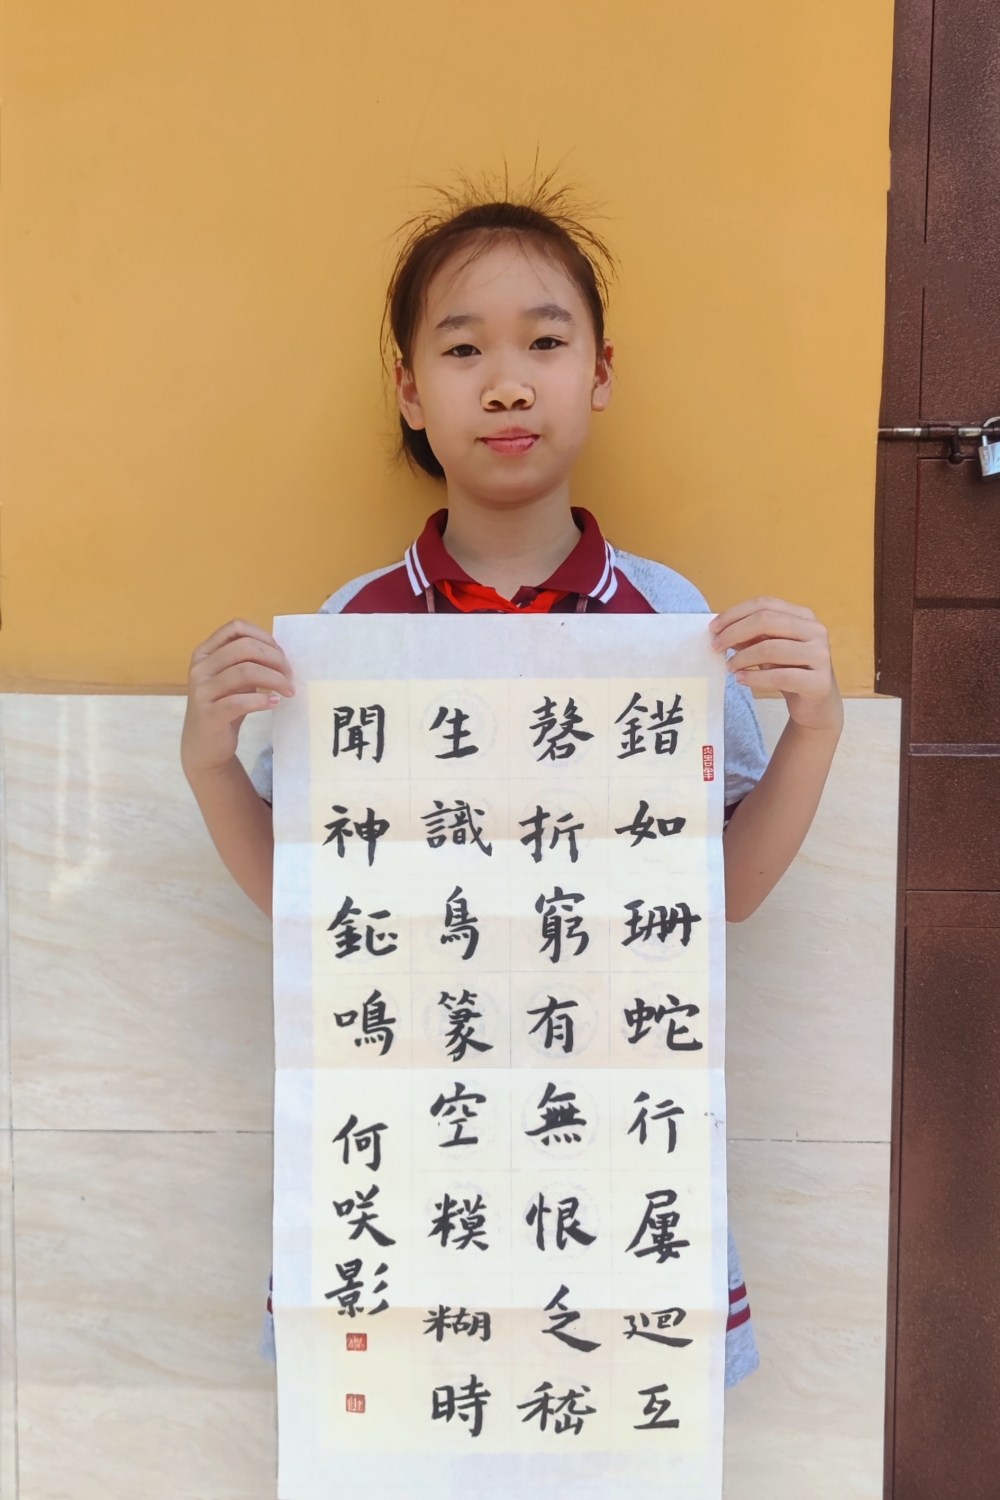 錯如珊蛇行屢廻互
磬折窮有無恨乏嵇
生識鳥篆空糢糊時
聞神鉦鳴 何咲影